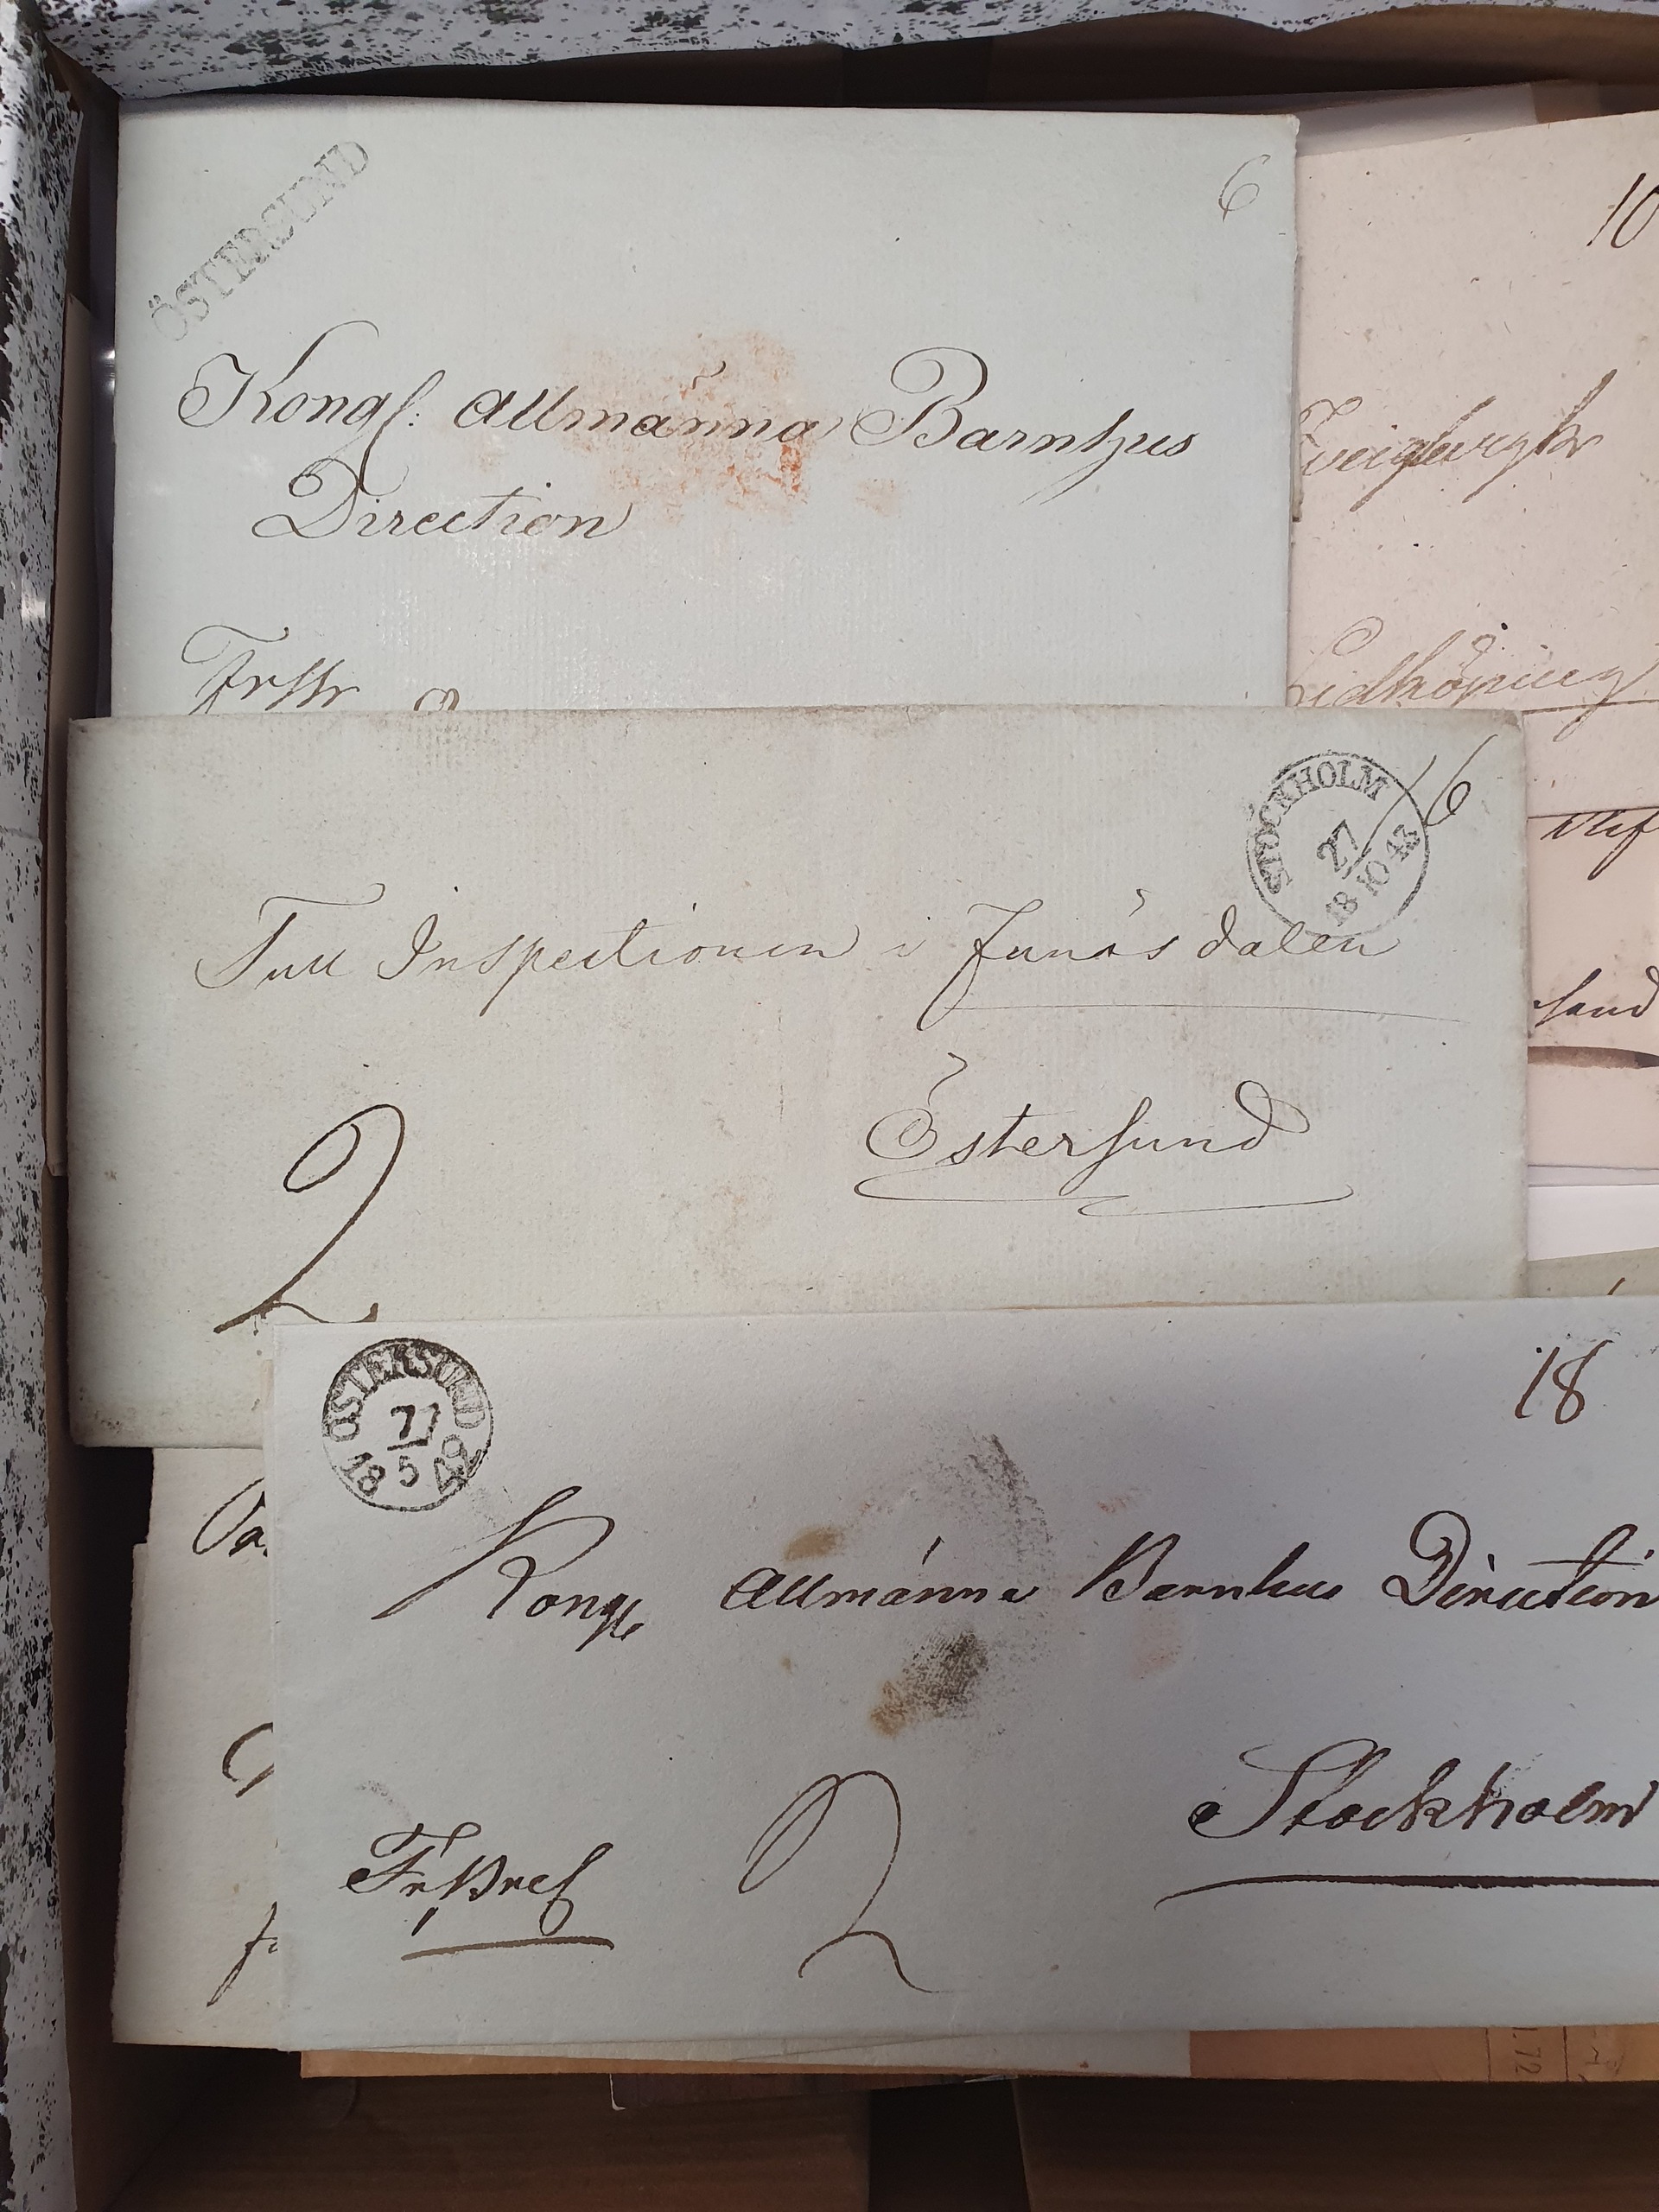 ÖSTERSUND
6
Kongl: Allmänna Barnhus
Direction
10
Lidköping
STOCKHOLM
27
18 10 43
6
Tull Inspectionen i Funäsdalen
Östersund
2
sund
ÖSTERSUND
5
18
Kongl Allmänna Barnhus Direction
Stockholm
Fr Bref
2
.72